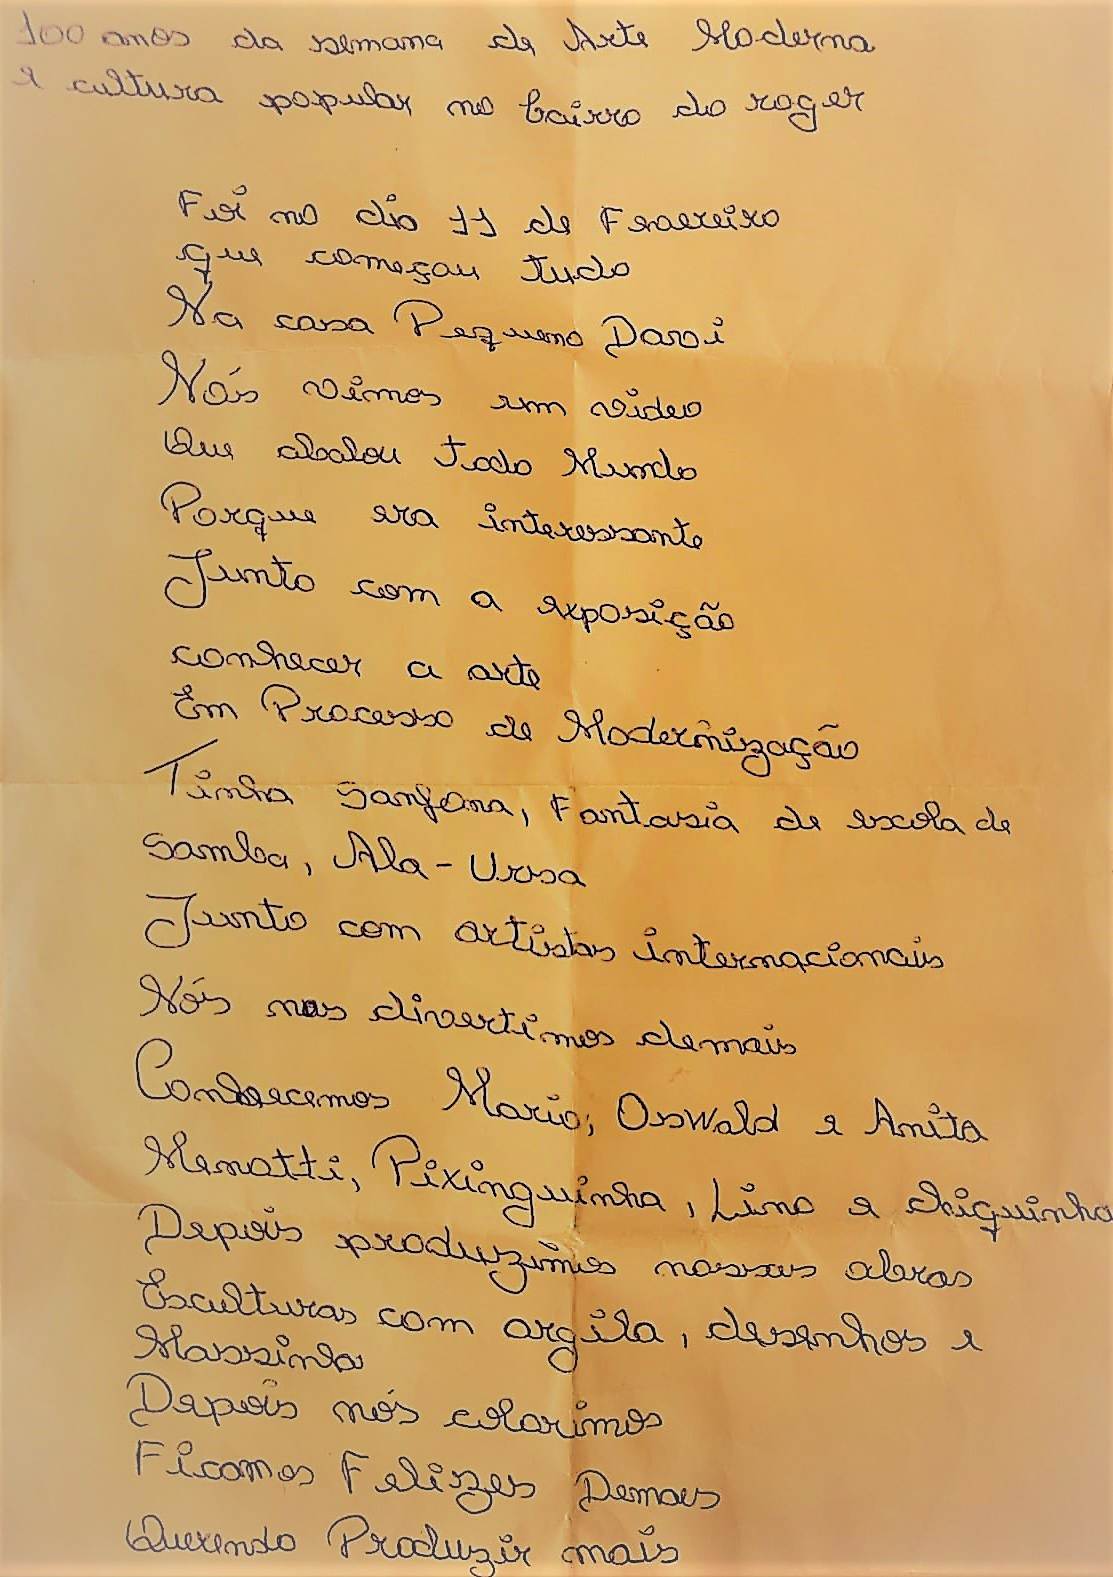 100 anos da semana de Arte Moderna
e cultura popular no bairro do roger
Foi no dia 11 de Fevereiro
que começou tudo
Na casa Pequeno Davi
Nós vimos um video
Que abalou todo Mundo
Porque era interessante
Junto com a exposição
conhecer a arte
Em Processo de Modernização
Tinha Sanfona, Fantasia de escola de
Samba, Ala-Ursa
Junto com artistas internacionais
Nós nos divertimos demais
Conhecemos Mario, OsWald e Anita
Menotti, Pixinguinha, Lino e chiquinha
Depois produzimos nossas obras
Esculturas com argila, desenhos e
Massinha
Depois nós colorimos
Ficamos Felizes Demais
Querendo Produzir mais